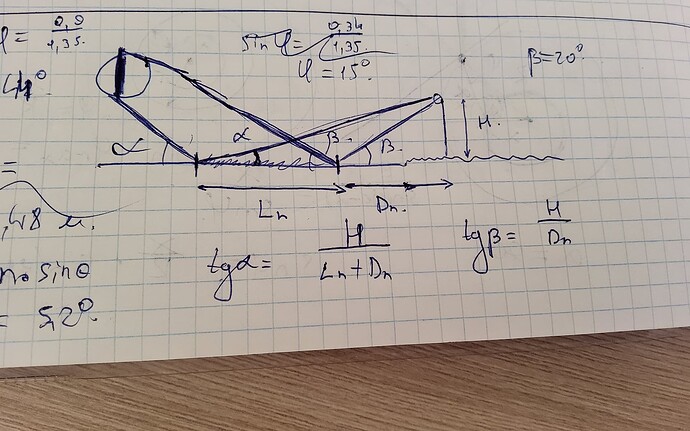 φ = 0,9 / 1,35.
sin φ = 0,34 / 1,35.
φ = 15°.
β = 20°
44°
α
α
β
β.
H.
=
Ln
Dn.
,48 м.
tgα = H / Ln + Dn
tgβ = H / Dn
n₀ sinθ
= 5,2°.